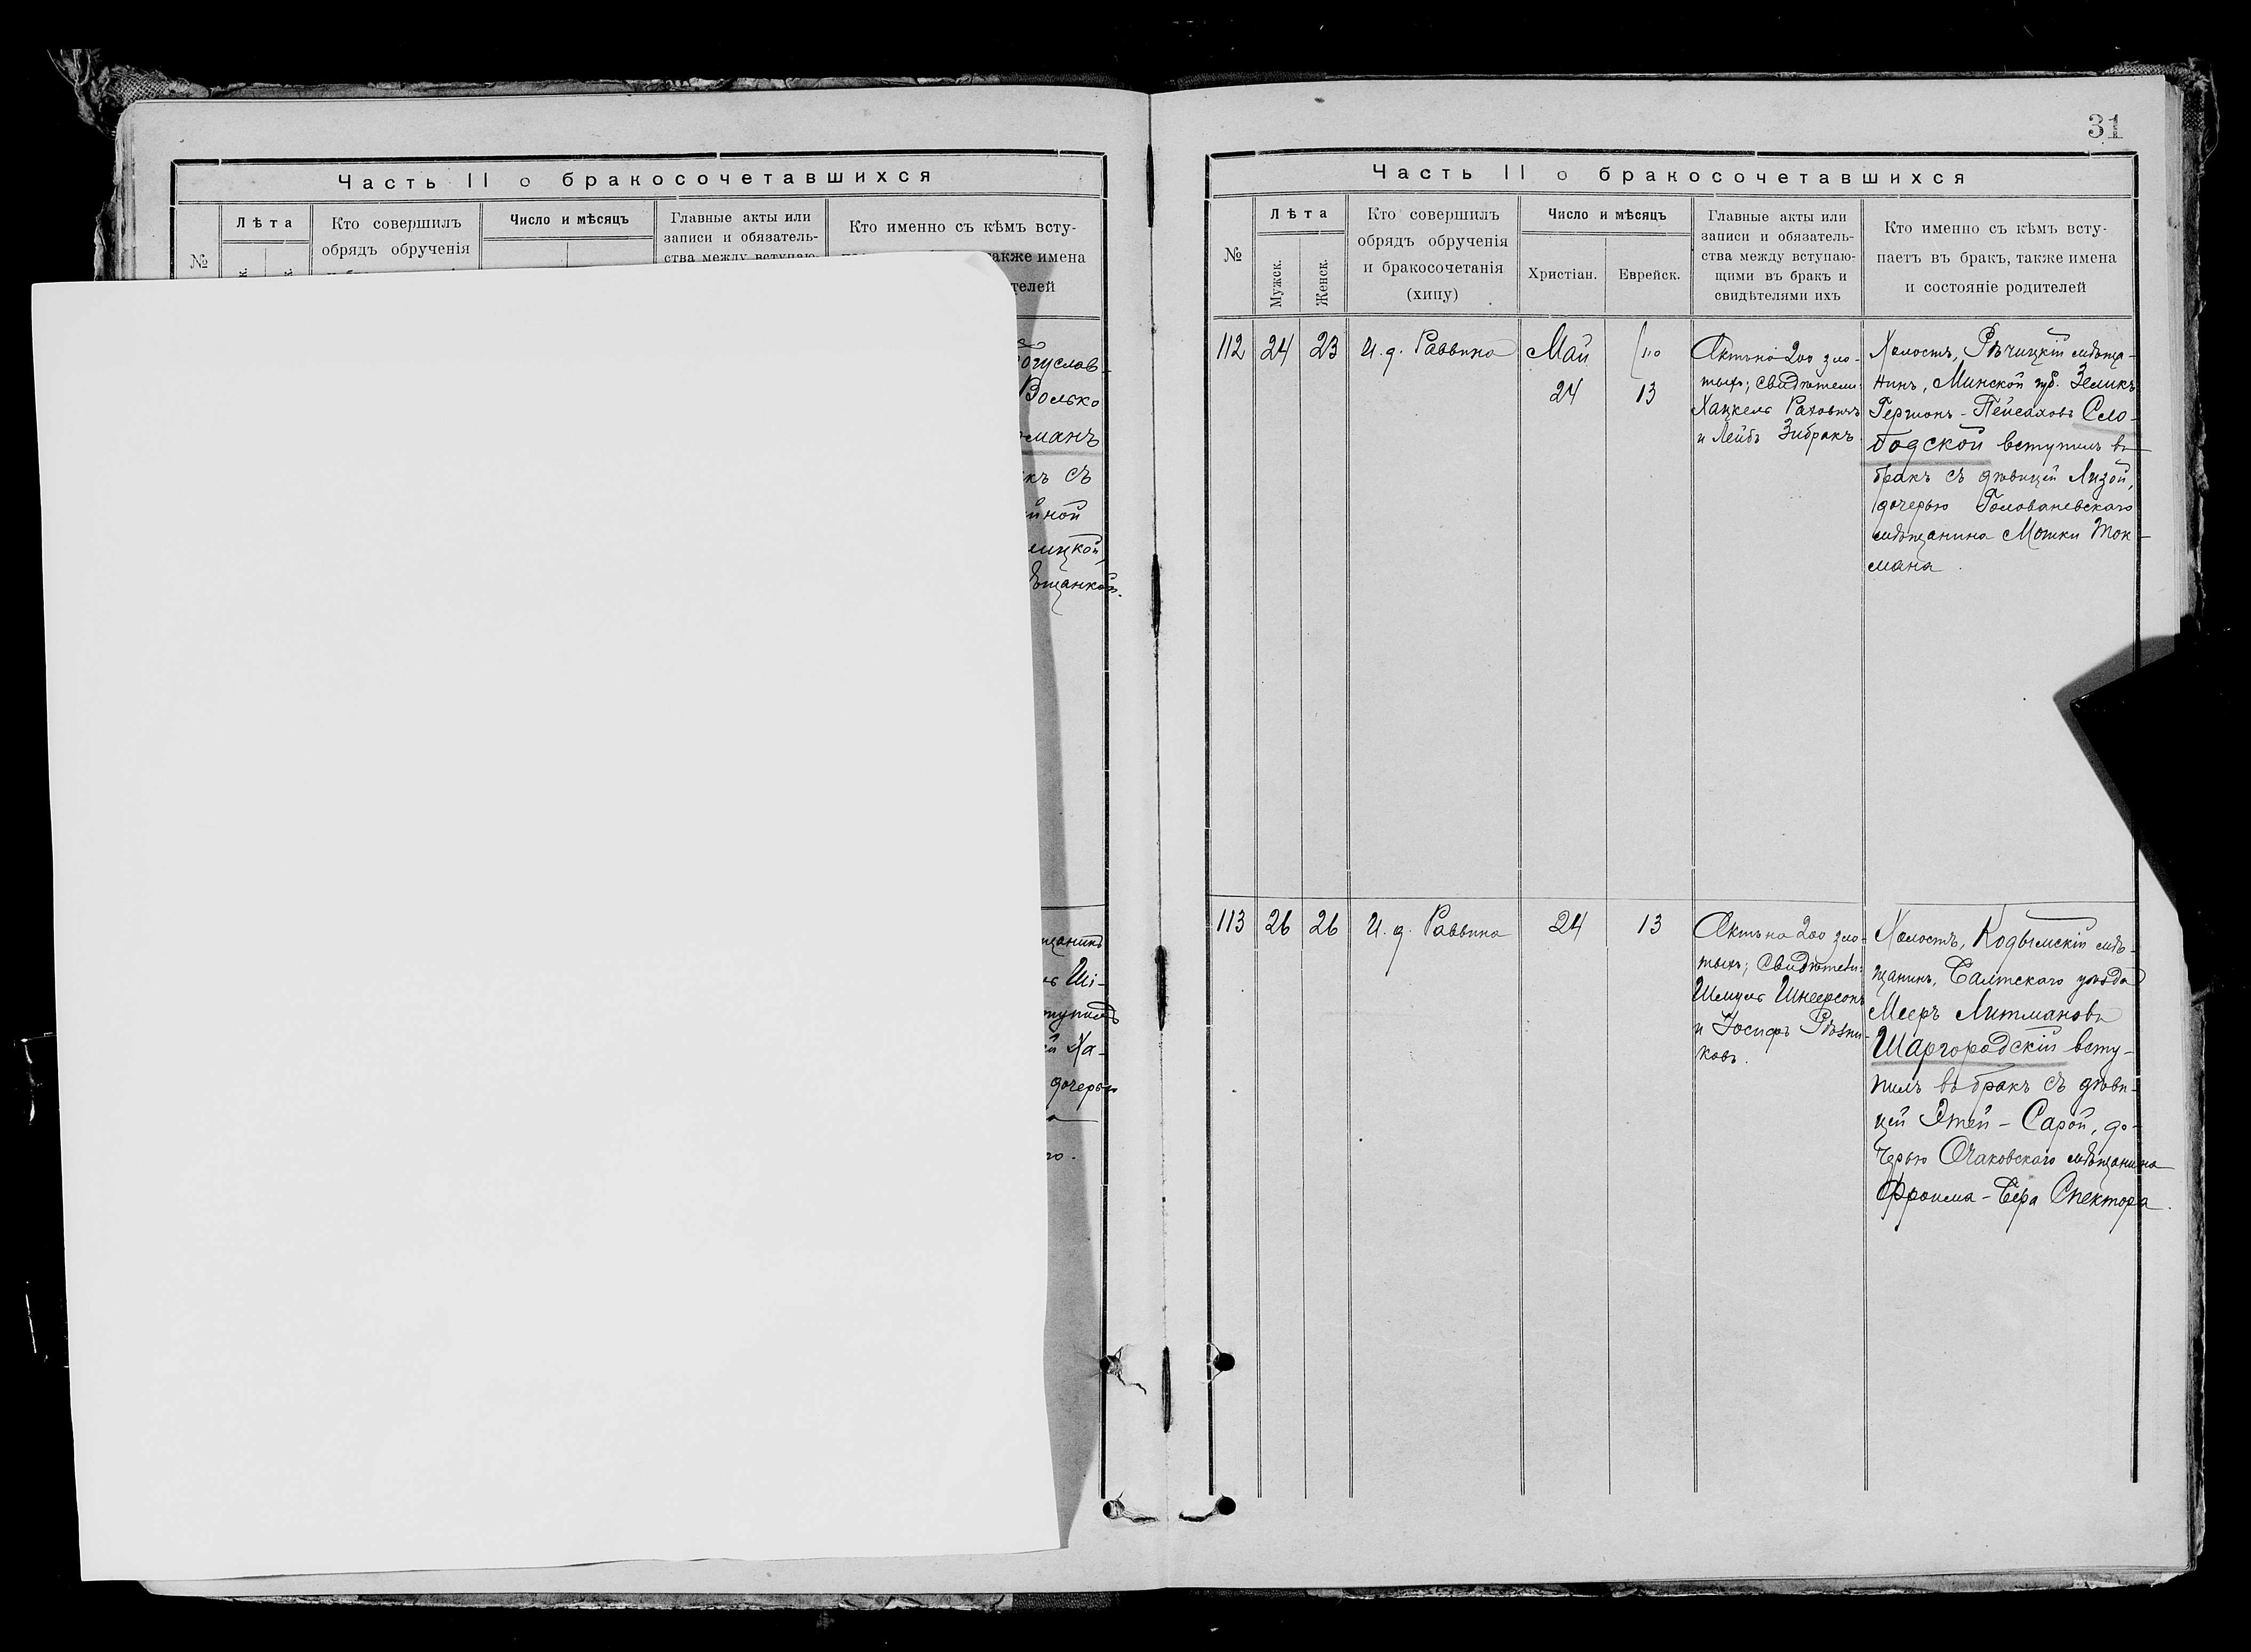 Часть II о бракосочетавшихся
Лѣта
Кто совершилъ
обрядъ обрученія
Число и мѣсяцъ
Главные акты или
записи и обязатель-
ства между вступаю-
Кто именно съ кѣмъ всту-
также имена
телей
№
огуслав-
Волько
манъ
къ съ
ицкой
ѣщанкой.
щанинъ
Ши-
ступилъ
й Ха-
дочерью
31
Часть II о бракосочетавшихся
№
Лѣта
Мужск.
Женск.
Кто совершилъ
обрядъ обрученія
и бракосочетанія
(хипу)
Число и мѣсяцъ
Христіан.
Еврейск.
Главные акты или
записи и обязатель-
ства между вступаю-
щими въ бракъ и
свидѣтелями ихъ
Кто именно съ кѣмъ всту-
паетъ въ бракъ, также имена
и состояніе родителей
112
24
23
И. д. Раввина
Май
24
13
Актъ на 200 зло-
тыхъ; свидѣтели:
Хацкель Раховичъ
и Лейбъ Зибракъ
Холостъ, Рѣчицкій мѣща-
нинъ, Минской губ. Зеликъ
Гершонъ-Пейсаховъ Сло-
бодской вступилъ въ
бракъ съ дѣвицей Лизой,
дочерью Голованевскаго
мѣщанина Мошки Ток-
мана.
113
26
26
И. д. Раввина
24
13
Актъ на 200 зло-
тыхъ; Свидѣтели:
Шмуль Шнеерсонъ
и Іосифъ Рѣзни-
ковъ.
Холостъ, Кодымскій мѣ-
щанинъ, Балтскаго уѣзда
Мееръ Литмановъ
Шаргородскій всту-
пилъ въ бракъ съ дѣви-
цей Этей-Сарой, до-
черью Очаковскаго мѣщанина
Фроима-Бера Спектора.